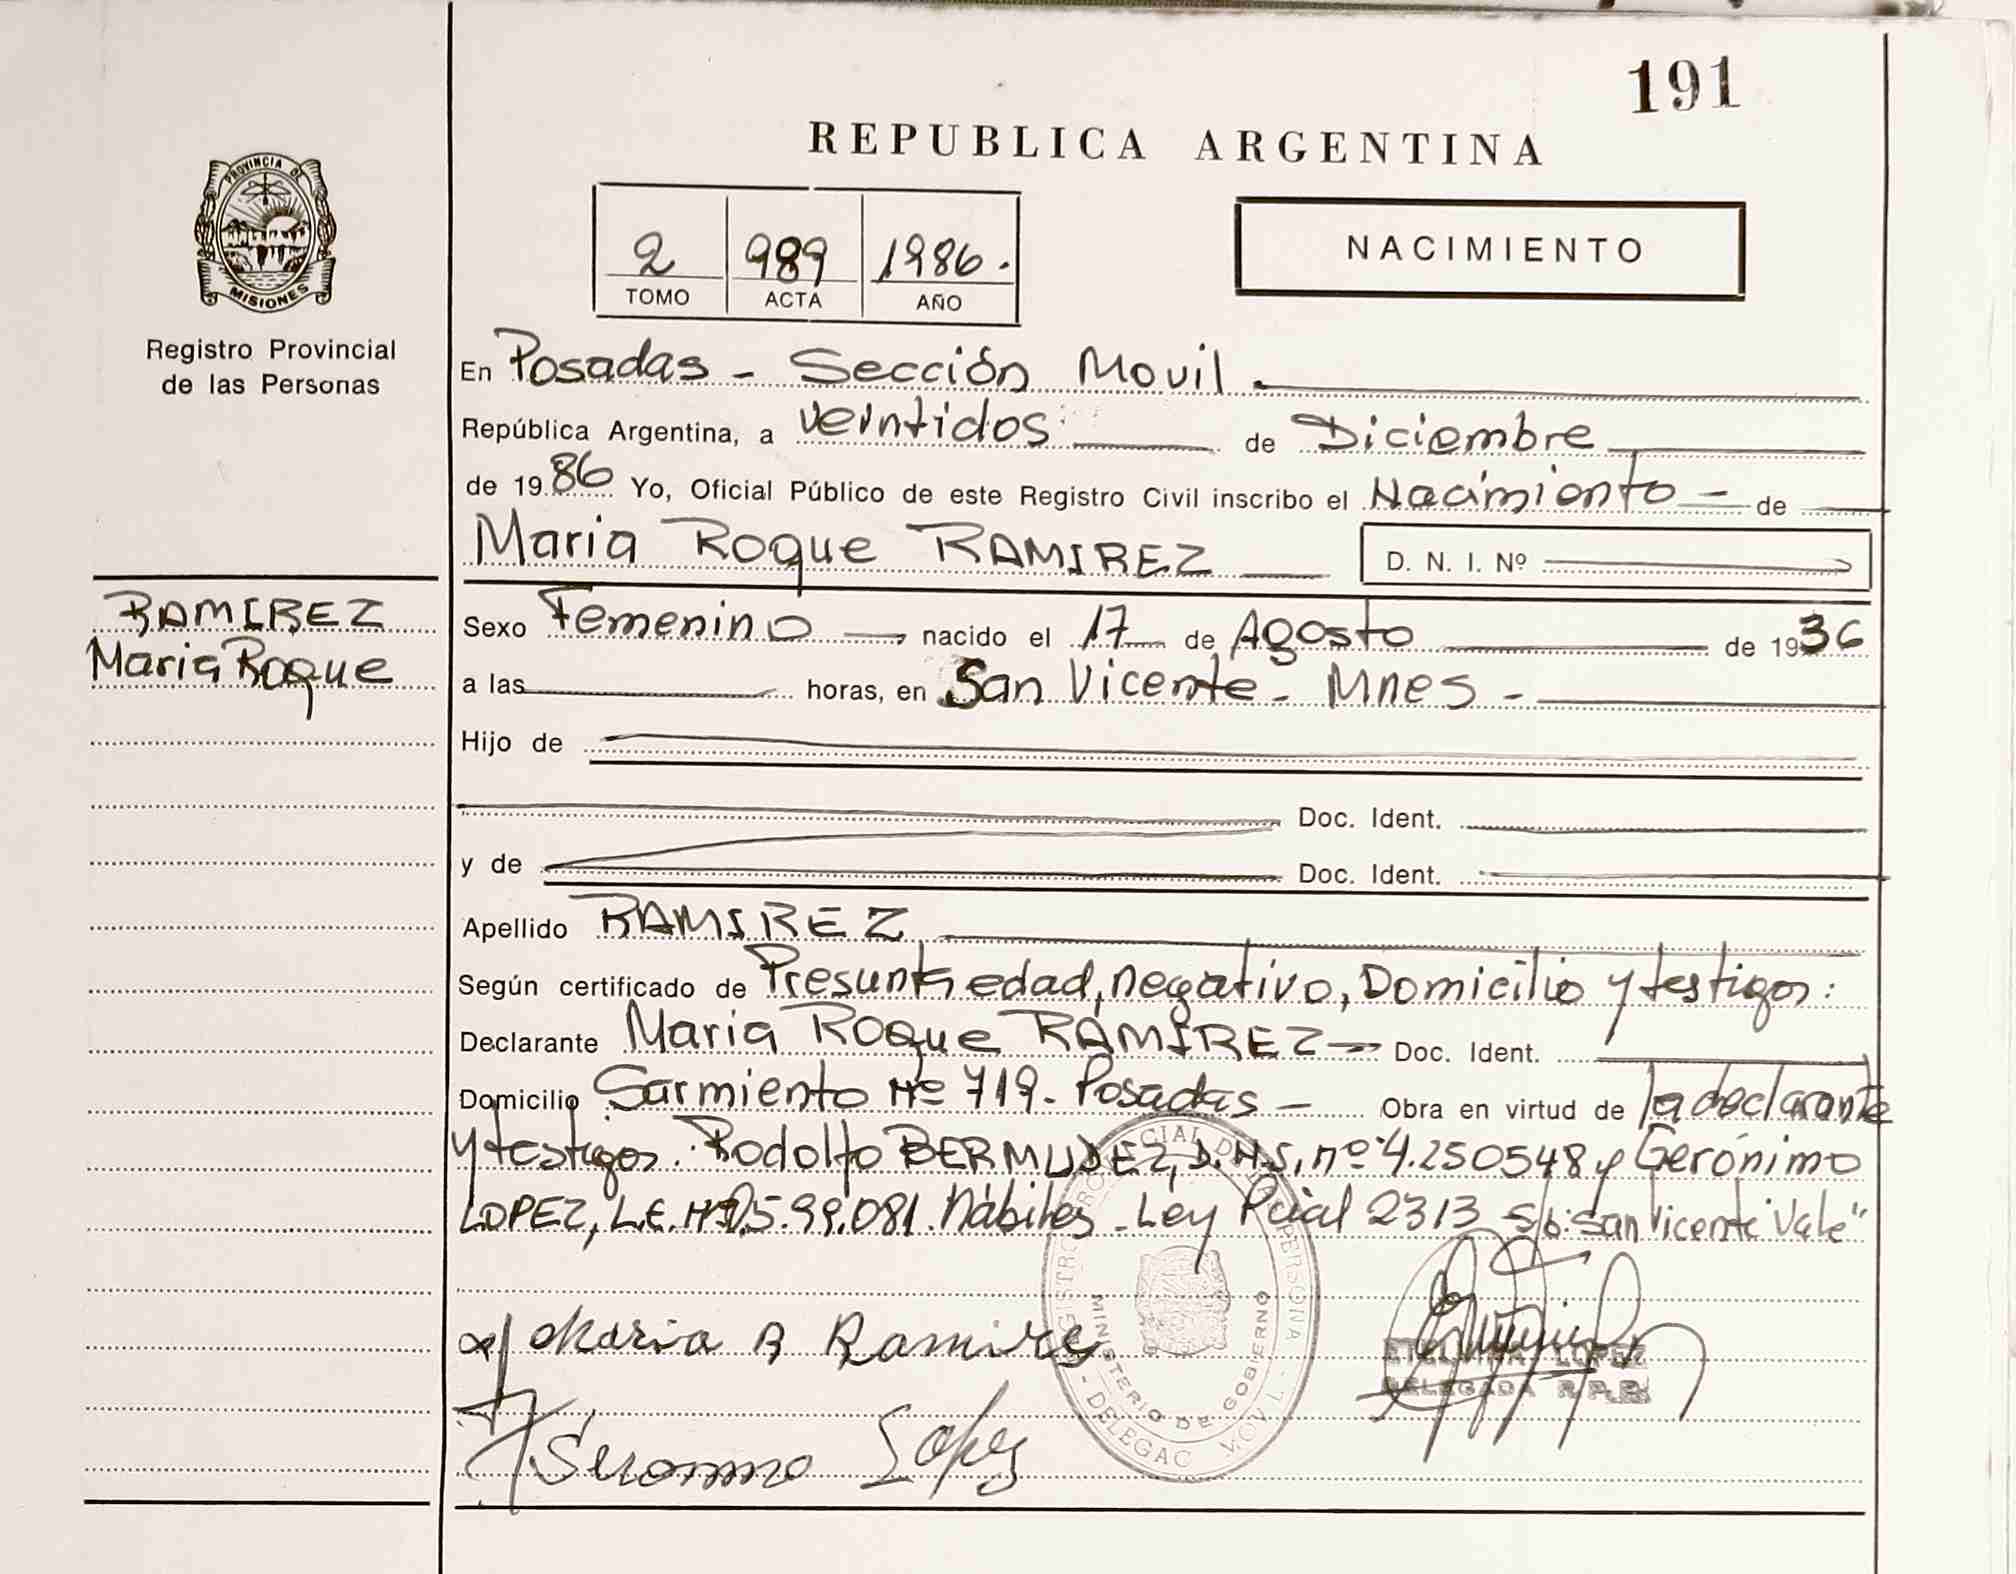 191
REPUBLICA ARGENTINA
PROVINCIA DE
MISIONES
Registro Provincial
de las Personas
2 989 1986.
TOMO ACTA AÑO
NACIMIENTO
En Posadas - Sección Movil.
República Argentina, a veintidos de Diciembre
de 1986 Yo, Oficial Público de este Registro Civil inscribo el Nacimiento - de
Maria Roque RAMIREZ D. N. I. Nº
RAMIREZ
Maria Roque
Sexo Femenino nacido el 17 de Agosto de 1936
a las horas, en San Vicente - Mnes -
Hijo de
Doc. Ident.
y de Doc. Ident.
Apellido RAMIREZ
Según certificado de Presunta edad, negativo, Domicilio y testigos:
Declarante Maria Roque RAMIREZ Doc. Ident.
Domicilio Sarmiento Nº 719 - Posadas - Obra en virtud de la declarante
y testigos. Rodolfo BERMUDEZ, nº 4.250548 y Gerónimo
LOPEZ, L.E. Hábiles - Ley Pcial 2313 S/b: San Vicente "Vale"
Maria R Ramires
Geronimo Lopez
LOPEZ
DELEGADA R.P.P.
REGISTRO PROVINCIAL DE LAS PERSONAS
MINISTERIO DE GOBIERNO
- DELEGAC MOVIL -